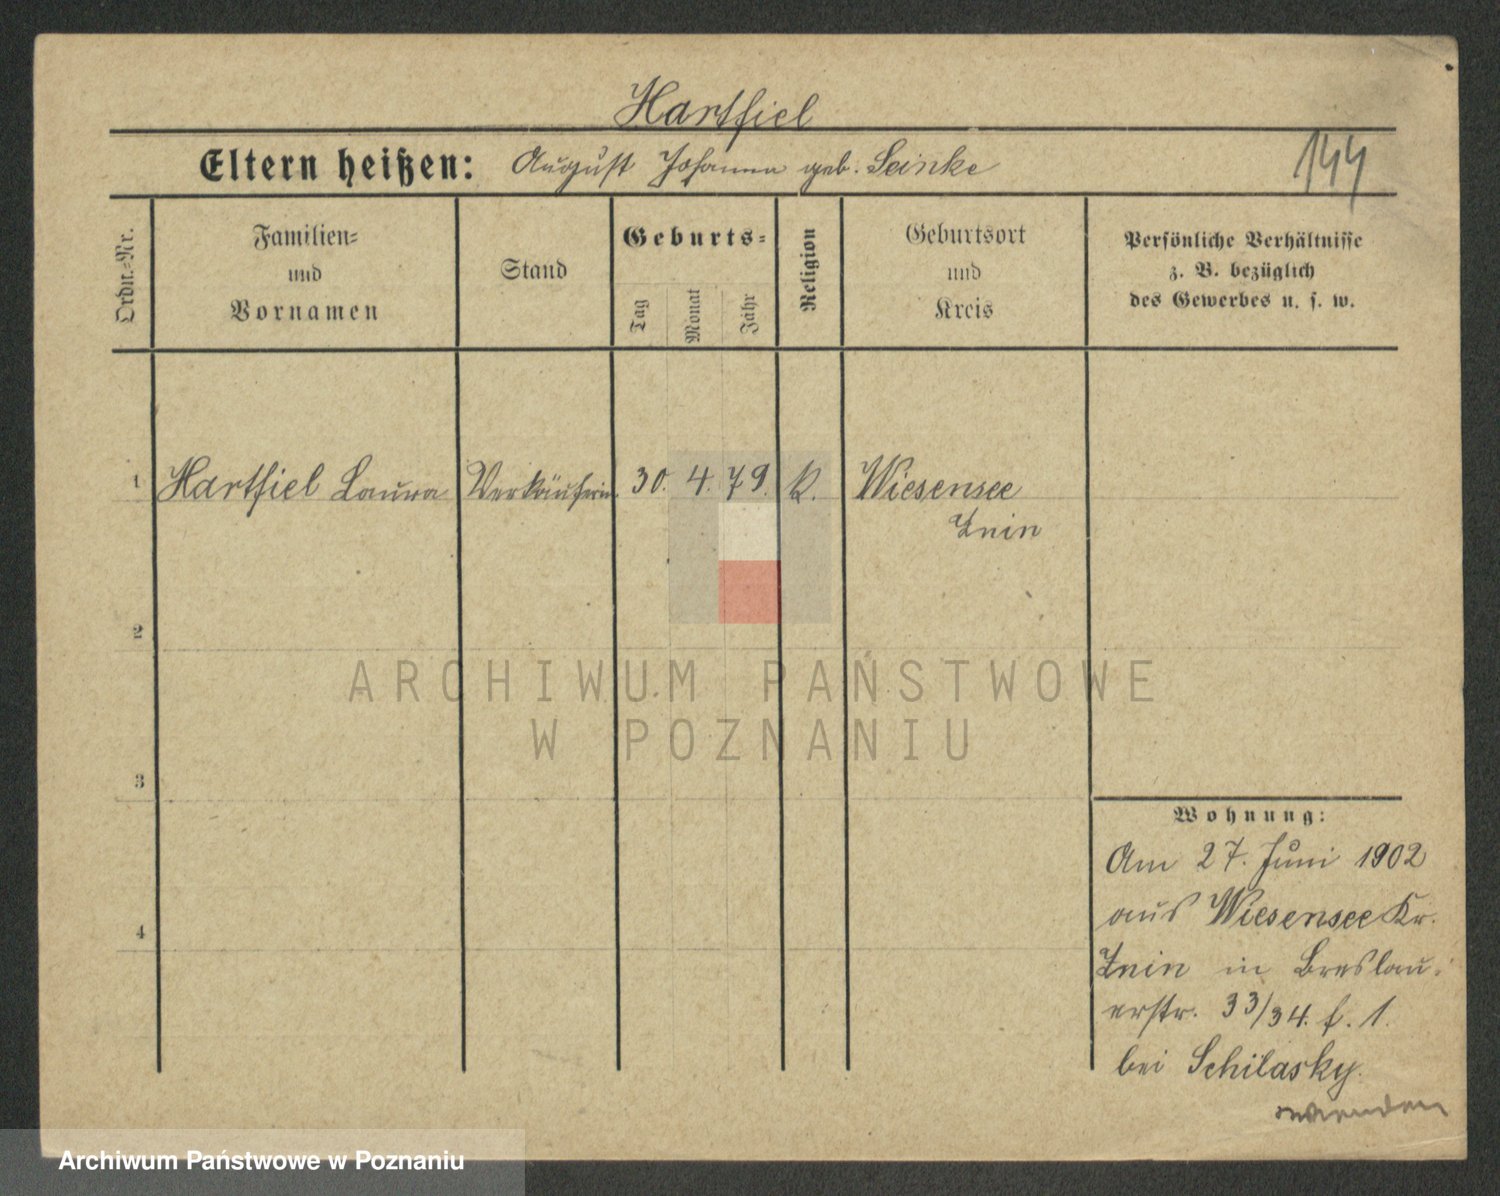 Hartfiel
Eltern heißen: August Johanna geb. Seinke
144
Ordn.-Nr.
Familien-
und
Vornamen
Stand
Geburts-
Tag
Monat
Jahr
Religion
Geburtsort
und
Kreis
Persönliche Verhältnisse
z. B. bezüglich
des Gewerbes u. s. w.
1 Hartfiel Laura Verkäuferin 30. 4. 79. k. Wiesensee
Znin
2
ARCHIWUM PAŃSTWOWE
W POZNANIU
3
4
Wohnung:
Am 27. Juni 1902
aus Wiesensee Kr.
Znin in Breslau-
erstr. 33/34. f. 1.
bei Schilasky.
wenden
Archiwum Państwowe w Poznaniu